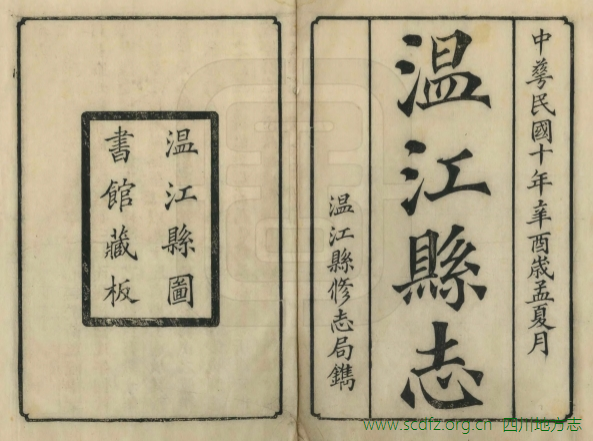 中華民國十年辛酉歲孟夏月
温江縣志
温江縣修志局鐫
温江縣圖
書館藏板
www.scdfz.org.cn 四川地方志